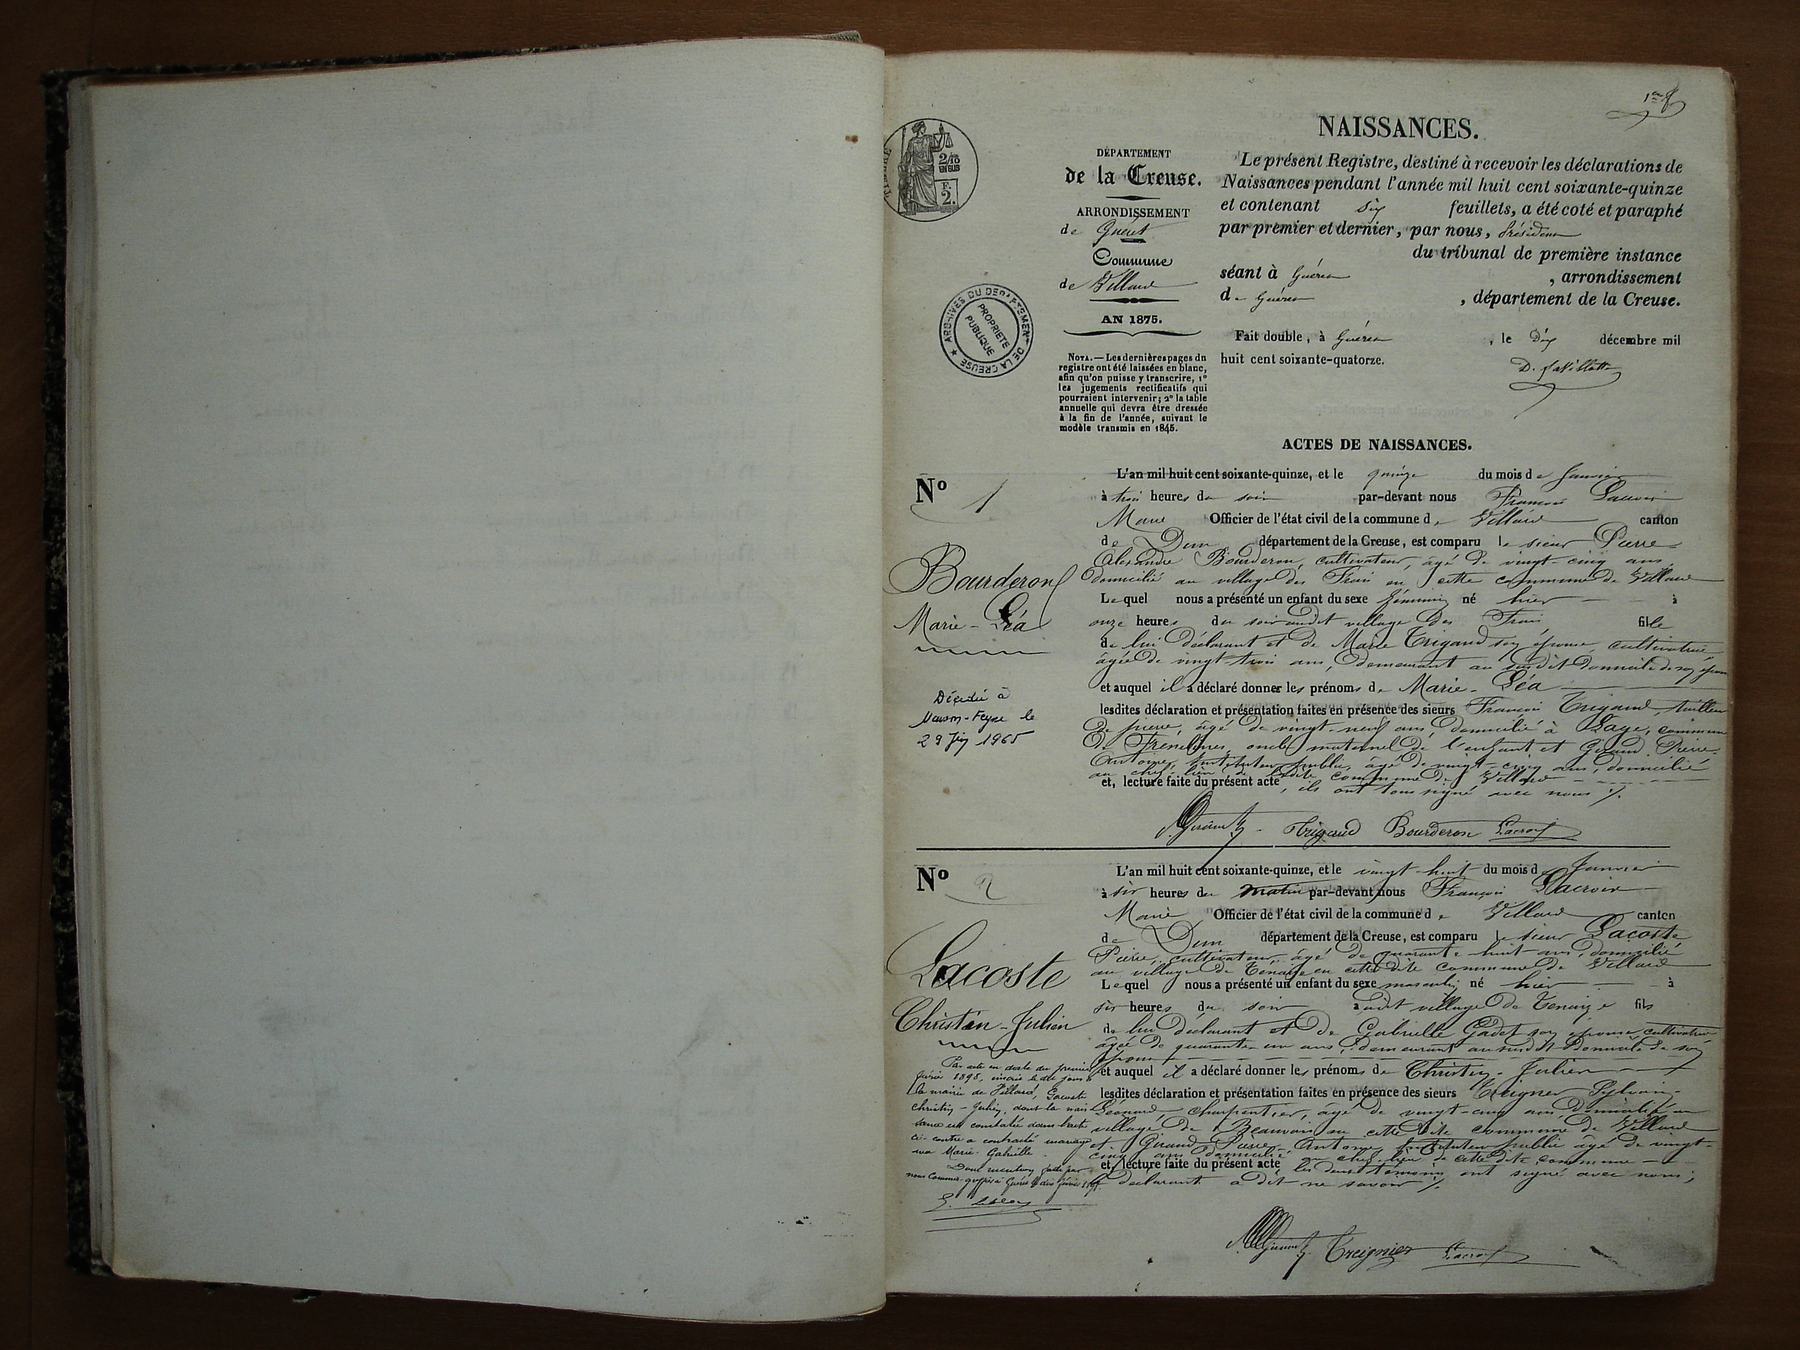 1er
NAISSANCES.
DÉPARTEMENT
de la Creuse.
ARRONDISSEMENT
de Guéret
Commune
de Villard
AN 1875.
NOTA. — Les dernières pages du
registre ont été laissées en blanc,
afin qu'on puisse y transcrire, 1º
les jugements rectificatifs qui
pourraient intervenir; 2º la table
annuelle qui devra être dressée
à la fin de l'année, suivant le
modèle transmis en 1845.
2/10 EN SUS
F. 2.
ARCHIVES DU DEPARTEMENT DE LA CREUSE
PROPRIETE PUBLIQUE
Le présent Registre, destiné à recevoir les déclarations de
Naissances pendant l'année mil huit cent soixante-quinze
et contenant six feuillets, a été coté et paraphé
par premier et dernier, par nous, Président
du tribunal de première instance
séant à Guéret , arrondissement
de Guéret , département de la Creuse.
Fait double, à Guéret , le dix décembre mil
huit cent soixante-quatorze.
ACTES DE NAISSANCES.
Nº 1
Bourderon
Marie-Léa
Décédée à
le
29 1965
L'an mil huit cent soixante-quinze, et le quinze du mois de Janvier
à trois heures du soir par-devant nous François Lacroix
Maire Officier de l'état civil de la commune de Villard canton
de Dun département de la Creuse, est comparu le sieur Pierre
Alexandre Bourderon, cultivateur, âgé de vingt-cinq ans,
domicilié au village des Frais en cette commune de Villard
Lequel nous a présenté un enfant du sexe féminin né hier à
onze heures du soir audit village des Frais fille
de lui déclarant et de Marie Trigaud son épouse, cultivatrice,
âgée de vingt-trois ans, demeurant au susdit domicile de son époux
et auquel il a déclaré donner les prénoms de Marie-Léa
lesdites déclaration et présentation faites en présence des sieurs François Trigaud, tailleur
de pierre, âgé de vingt-neuf ans, domicilié à Lage, commune
de oncle maternel de l'enfant et Giraud Pierre
Antoine, instituteur public, âgé de vingt-cinq ans, domicilié
au chef-lieu de ladite commune de Villard
et, lecture faite du présent acte, ils ont tous signé avec nous
Giraud Trigaud Bourderon Lacroix
Nº 2
Lacoste
Christin-Julien
Par acte en date du premier
février 1898, inscrit le dit jour à
la mairie de Villard, Lacoste
Christin-Julien, dont la nais
sance est constatée dans l'acte
ci-contre a contracté mariage
avec Marie Gabrielle
L'an mil huit cent soixante-quinze, et le vingt huit du mois de Janvier
à six heures du matin par-devant nous François Lacroix
Maire Officier de l'état civil de la commune de Villard canton
de Dun département de la Creuse, est comparu le sieur Lacoste
Pierre, cultivateur, âgé de quarante huit ans, domicilié
au village de Tenaize en cette dite commune de Villard
Lequel nous a présenté un enfant du sexe masculin né hier à
six heures du soir audit village de Tenaize fils
de lui déclarant et de Gabrielle Gadet son épouse, cultivatrice
âgée de quarante un ans, demeurant au susdit domicile de son
époux
et auquel il a déclaré donner les prénoms de Christin-Julien
lesdites déclaration et présentation faites en présence des sieurs Treignier Sylvain
Léonard charpentier, âgé de vingt-cinq ans, domicilié au
village de Beauvais en cette dite commune de Villard
et Giraud Pierre Antoine instituteur public âgé de vingt-
cinq ans domicilié au chef-lieu de cette dite commune
et, lecture faite du présent acte, les deux témoins ont signé avec nous;
le déclarant a dit ne savoir
Giraud Treignier Lacroix